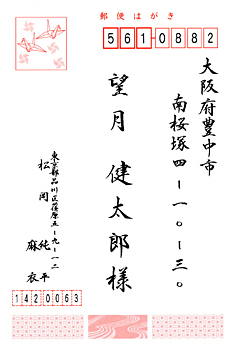 郵便はがき
5610882
大阪府豊中市
南桜塚四ー一〇ー三〇
望月 健太郎様
東京都品川区荏原五ー九ー一二
松岡 純平
麻衣
1420063